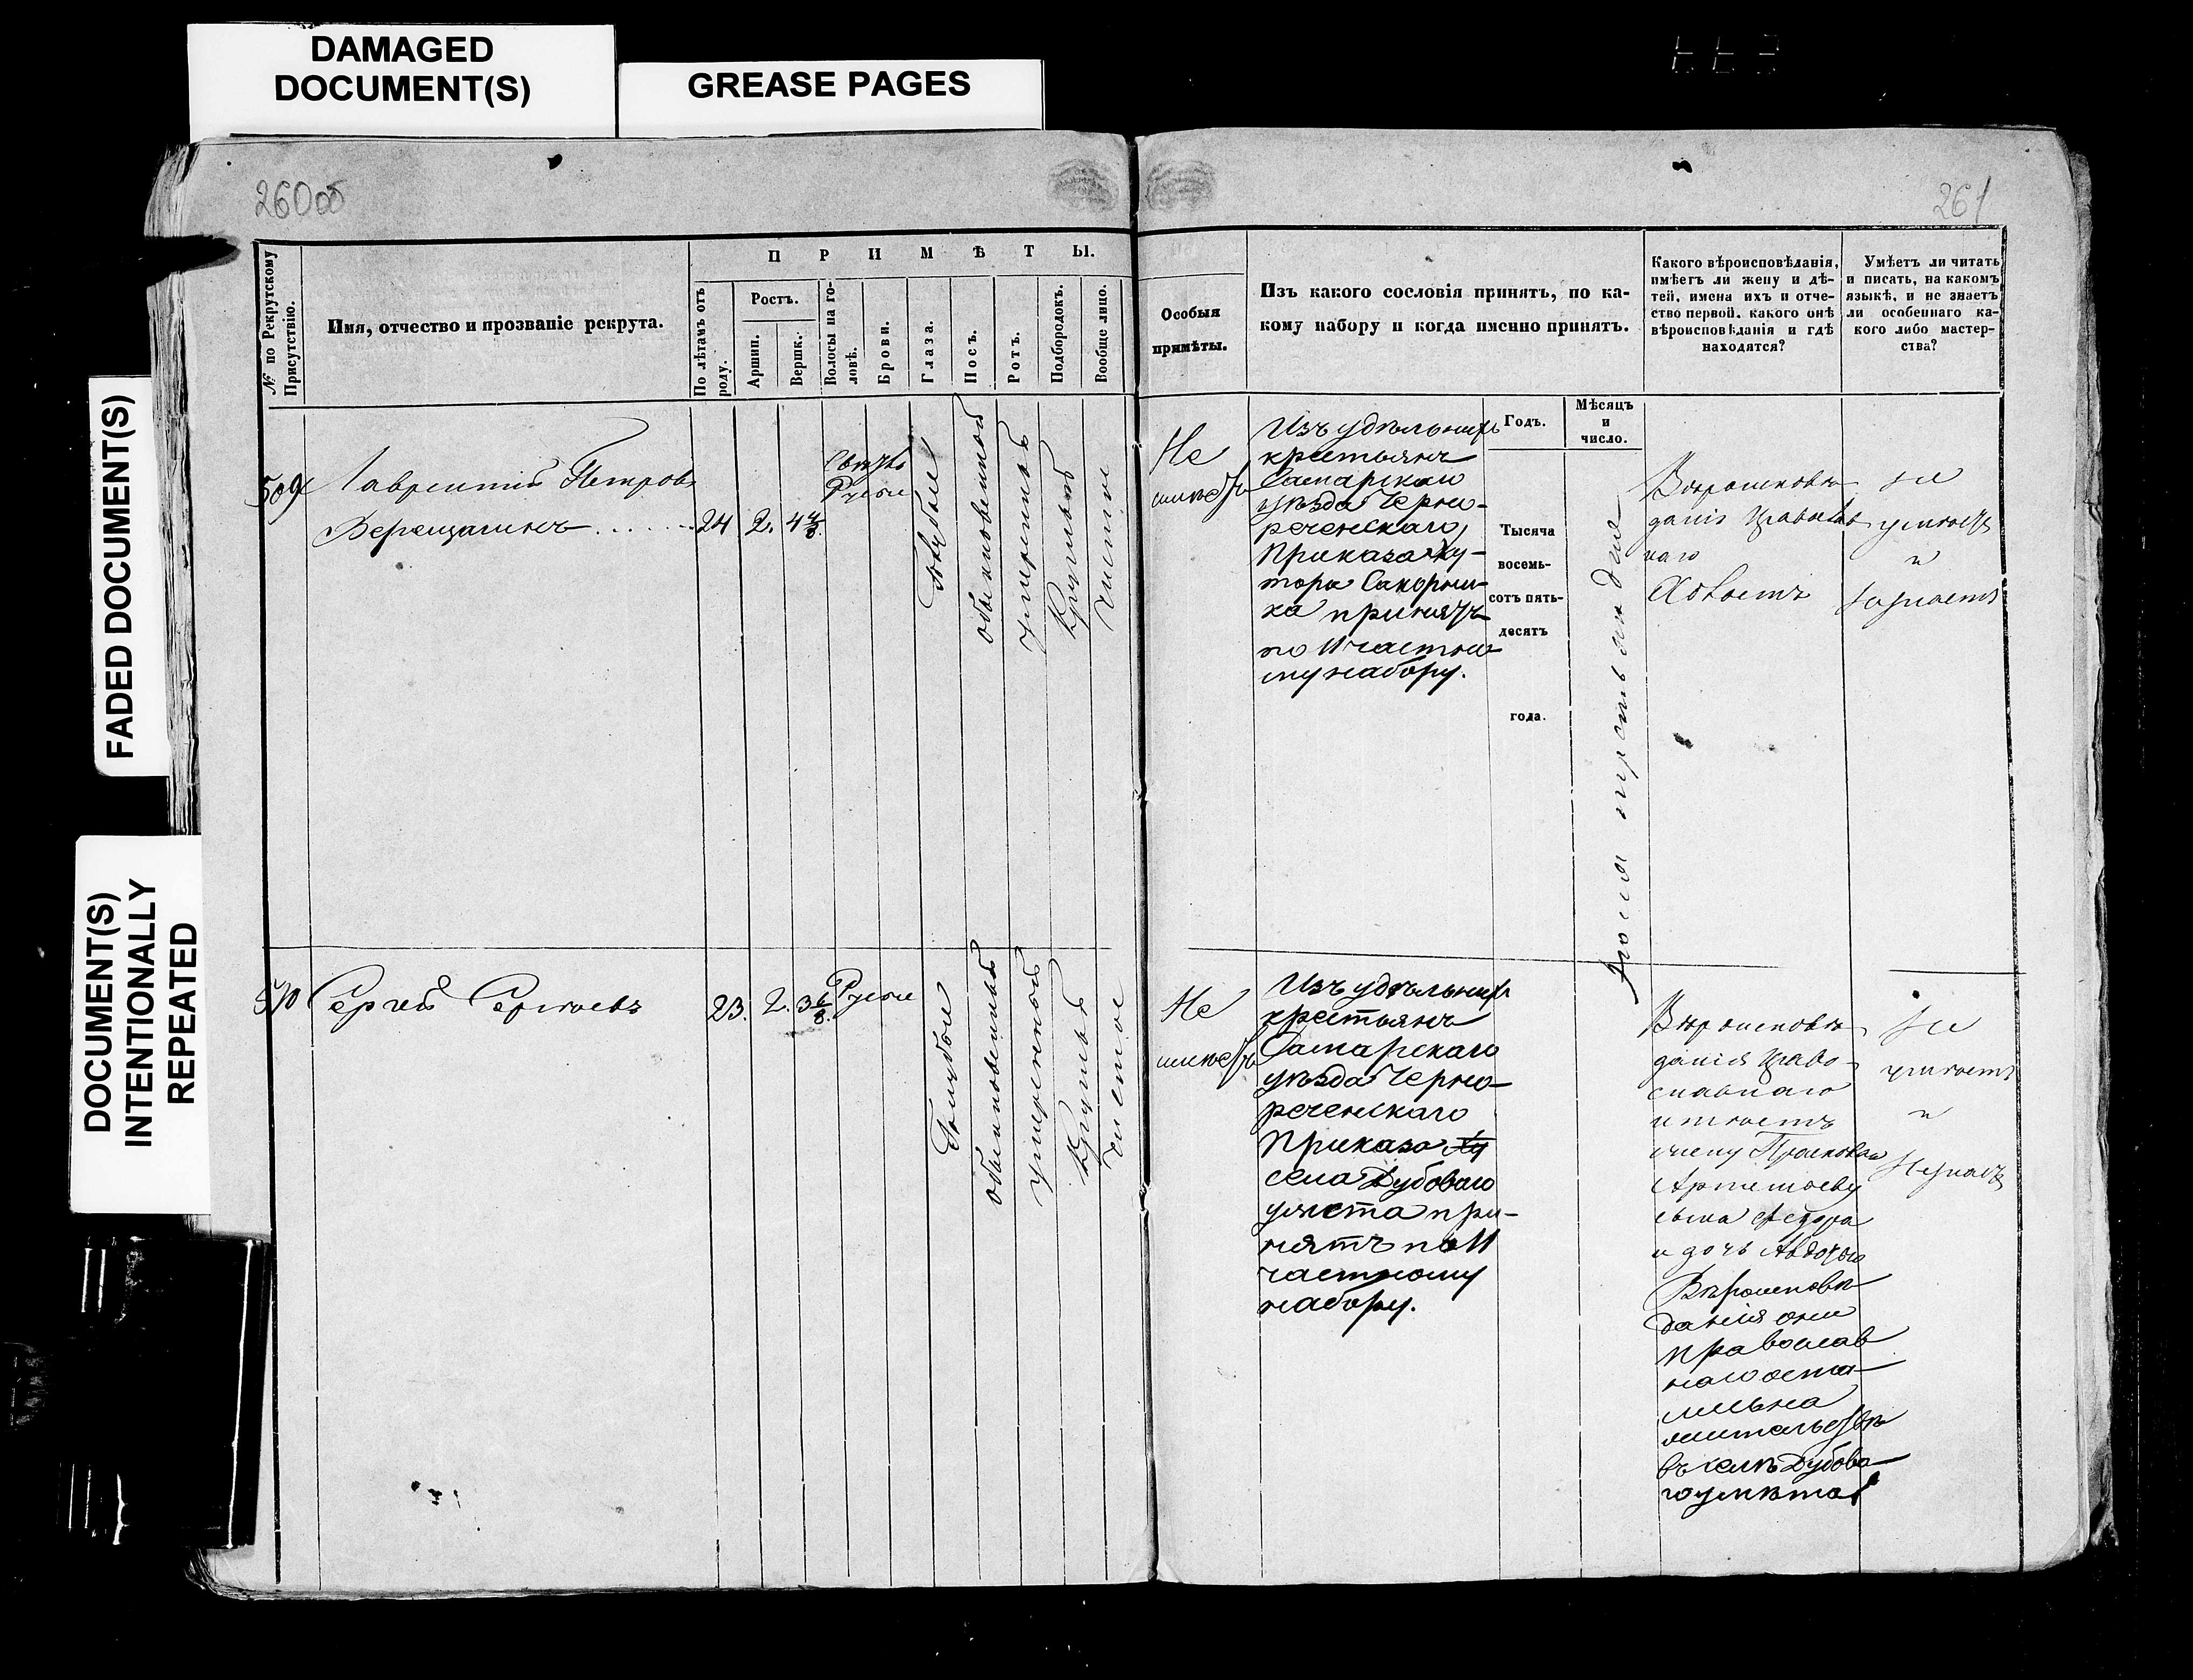 DAMAGED
DOCUMENT(S)
GREASE PAGES
FADED DOCUMENT(S)
DOCUMENT(S)
INTENTIONALLY
REPEATED
260об
261
№ по Рекрутскому
Присутствію.
Имя, отчество и прозваніе рекрута.
ПРИМѢТЫ.
По лѣтамъ отъ
роду.
Ростъ.
Аршин.
Вершк.
Волосы на го-
ловѣ.
Брови.
Глаза.
Носъ.
Ротъ.
Подбородокъ.
Вообще лицо.
Особыя
примѣты.
Изъ какого сословія принятъ, по ка-
кому набору и когда именно принятъ.
Какого вѣроисповѣданія,
имѣетъ ли жену и дѣ-
тей, имена ихъ и отче-
ство первой, какого онѣ
вѣроисповѣданія и гдѣ
находятся?
Умѣетъ ли читать
и писать, на какомъ
языкѣ, и не знаетъ
ли особеннаго ка-
кого либо мастер-
ства?
Годъ.
Мѣсяцъ
и
число.
Тысяча
восемь-
сотъ пять-
десятъ
года.
509
Лаврентій Петровъ
Верещагинъ
24
2.
4 4/8
Свѣтло
Русые
Голубые
обыкновенной
умеренной
Круглой
чистое
Не
имѣетъ
Изъ удѣльныхъ
крестьянъ
Самарскаго
уѣзда Черно-
реченскаго
Приказа Ху-
тора
принятъ
по 11 частно
му набору.
Вѣроисповѣ-
данія Православ
наго
Холостъ
не
умѣетъ
и
незнаетъ
510
Сергей Сергѣевъ
23.
2.
3 6/8.
Русые
Голубые
обыкновенный
умеренной
Круглый
чистое
Не
имѣетъ
Изъ удѣльныхъ
крестьянъ
Самарскаго
уѣзда Черно-
реченскаго
Приказа Ху
села Дубоваго
умета при-
нятъ по 11
частному
набору.
Вѣроисповѣ-
данія Право-
славнаго
имѣетъ
жену Прасковью
Артемьеву
сына Федора
и дочь Авдотью
Вѣроисповѣ-
данія они
православ
наго оста-
лись на
жительствѣ
въ селѣ Дубова-
го умѣта
не
умѣетъ
и
незнаетъ